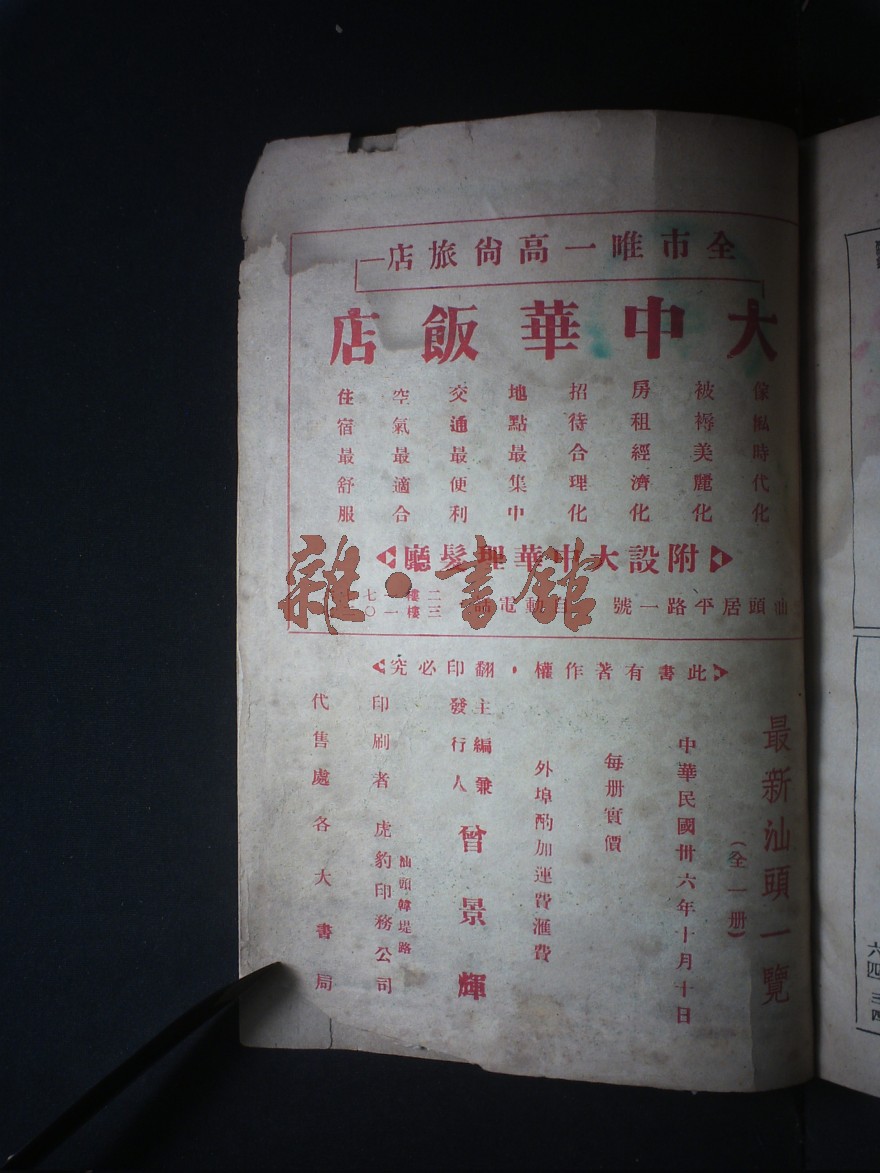 全市唯一高尙旅店
大中華飯店
傢俬時代化
被褥美麗化
房租經濟化
招待合理化
地點最集中
交通最便利
空氣最適合
住宿最舒服
附設大中華理髮廳
汕頭居平路一號 自動電話
二樓一七
三樓一〇
此書有著作權·翻印必究
最新汕頭一覽
(全一册)
中華民國卅六年十月十日
每册實價
外埠酌加運費滙費
主編兼
發行人 曾景輝
汕頭韓堤路
印刷者 虎豹印務公司
代售處各大書局
雜·書館
六四
三四